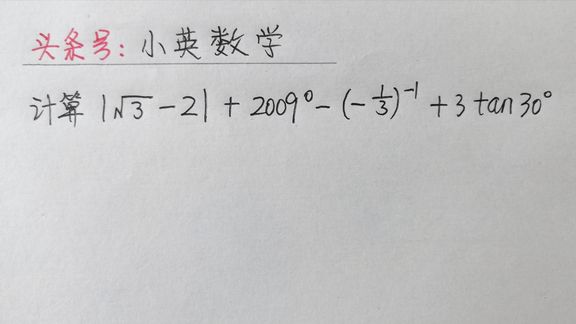 头条号：小英数学
计算 |√3-2| + 2009⁰ - (-1/3)⁻¹ + 3 tan30°